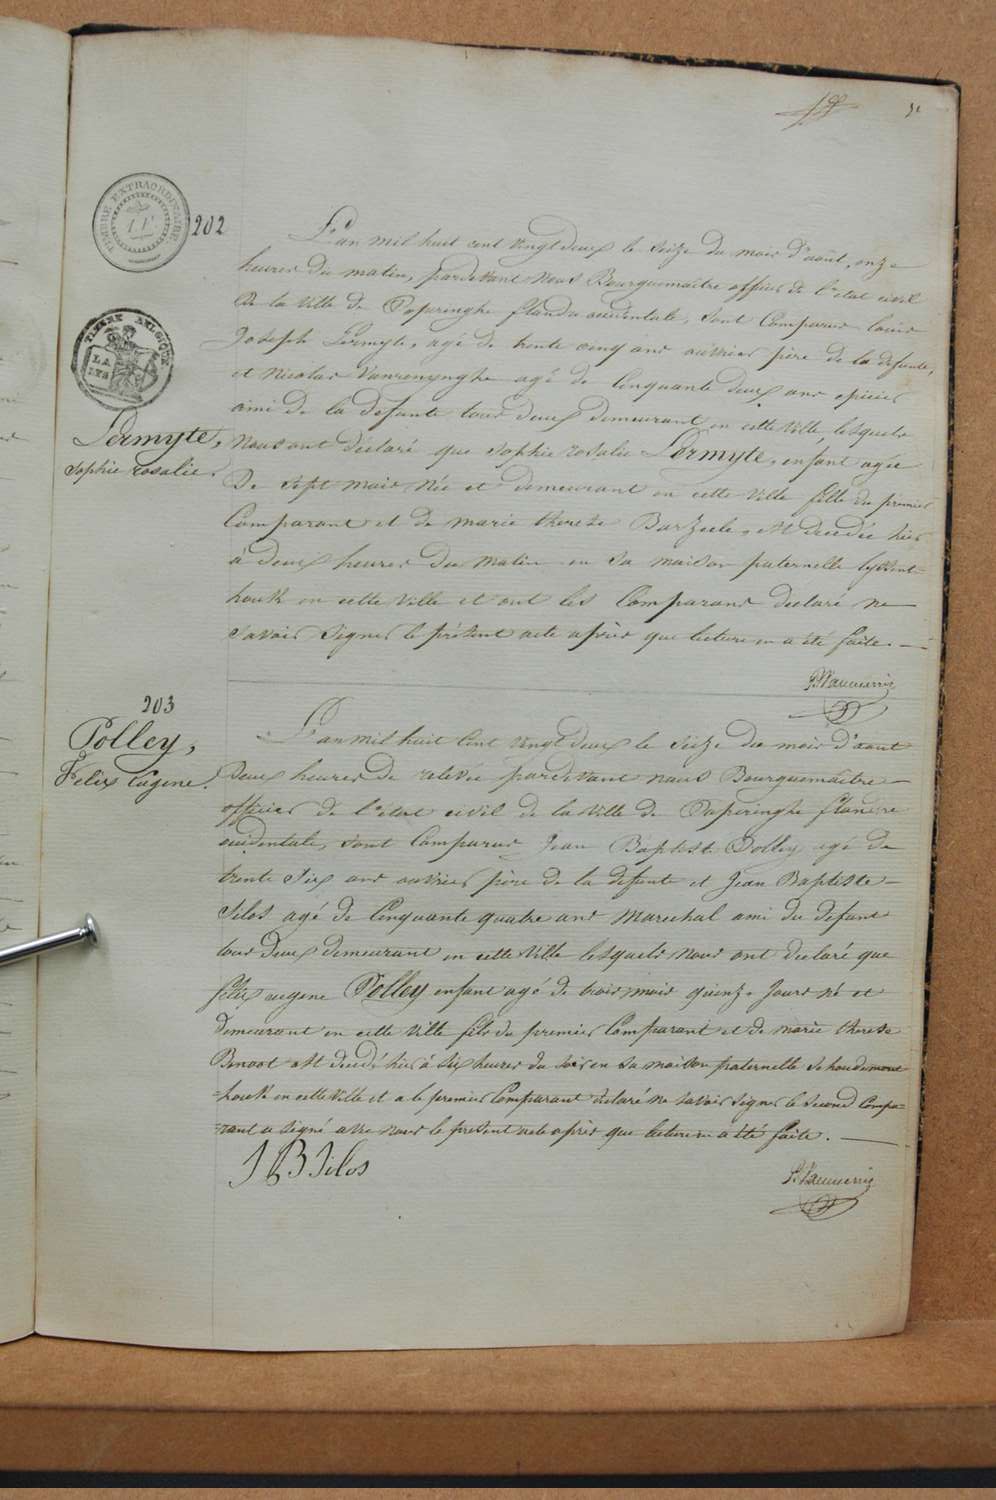 51
TIMBRE EXTRAORDINAIRE
1 F
202
TIMBRE BELGIQUE
LA
LYS
Lermyte,
Sophie rosalie.
L'an mil huit cent vingt deux le Seize du mois d'aout, onze
heures du matin, pardevant nous Bourguemaitre officier de l'etat civil
De la Ville de Poperinghe flandre occidentale, sont Comparus louis
Joseph Lermyte, agé de trente cinq ans ouvrier père de la defunte,
et Nicolas Vanrenynghe agé de Cinquante deux ans epicier
ami de la defunte tous deux demeurant en cette Ville, lesquels
Nous ont déclaré que Sophie rosalie Lermyte, enfant agée
De Sept mois Née et demeurant en cette Ville fille du premier
Comparant et de marie therese Barzeele, est decedée hier
à deux heures du matin en sa maison paternelle
houk en cette Ville et ont les Comparans declaré ne
Savoir Signer le présent acte après que lecture en a été faite.
203
Polley,
Felix Eugene.
L'an mil huit Cent vingt deux le Seize du mois d'aout
Deux heures de relevée pardevant nous Bourguemaitre
officier de l'etat civil de la Ville de Poperinghe flandre
occidentale, sont Comparus Jean Baptiste Polley agé de
trente Six ans ouvrier père de la defunte et Jean Baptiste
Silos agé de Cinquante quatre ans Marechal ami du defunt
tous Deux demeurant en cette Ville lesquels nous ont declaré que
félix eugene Polley enfant agé de trois mois quinze Jours né et
Demeurant en cette Ville fils du premier Comparant et de marie therese
Benoot est decedé hier à Six heures du soir en sa maison paternelle
houk en cette Ville et a le premier Comparant declaré ne savoir signer le Second Compa=
=rant a signé avec nous le present acte après que lecture en a été faite.
J B Silos